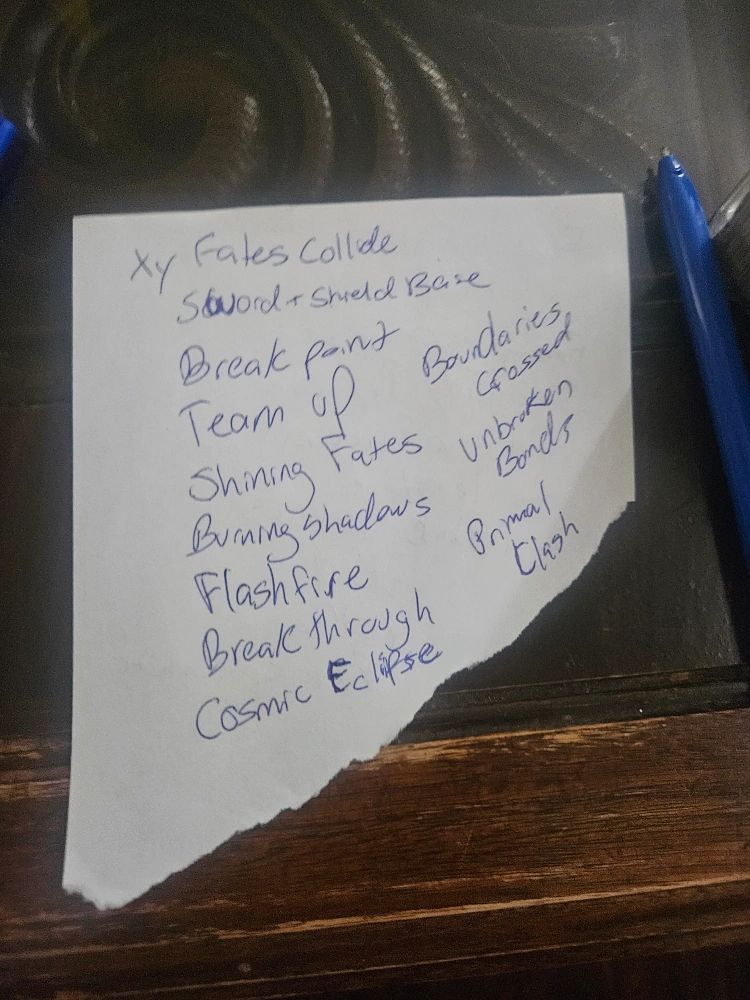 Xy Fates Collide
Sword + Shield Base
Break point
Team up
Shining Fates
Burning Shadows
Flashfire
Breakthrough
Cosmic Eclipse
Boundaries
Crossed
Unbroken
Bonds
Primal
Clash